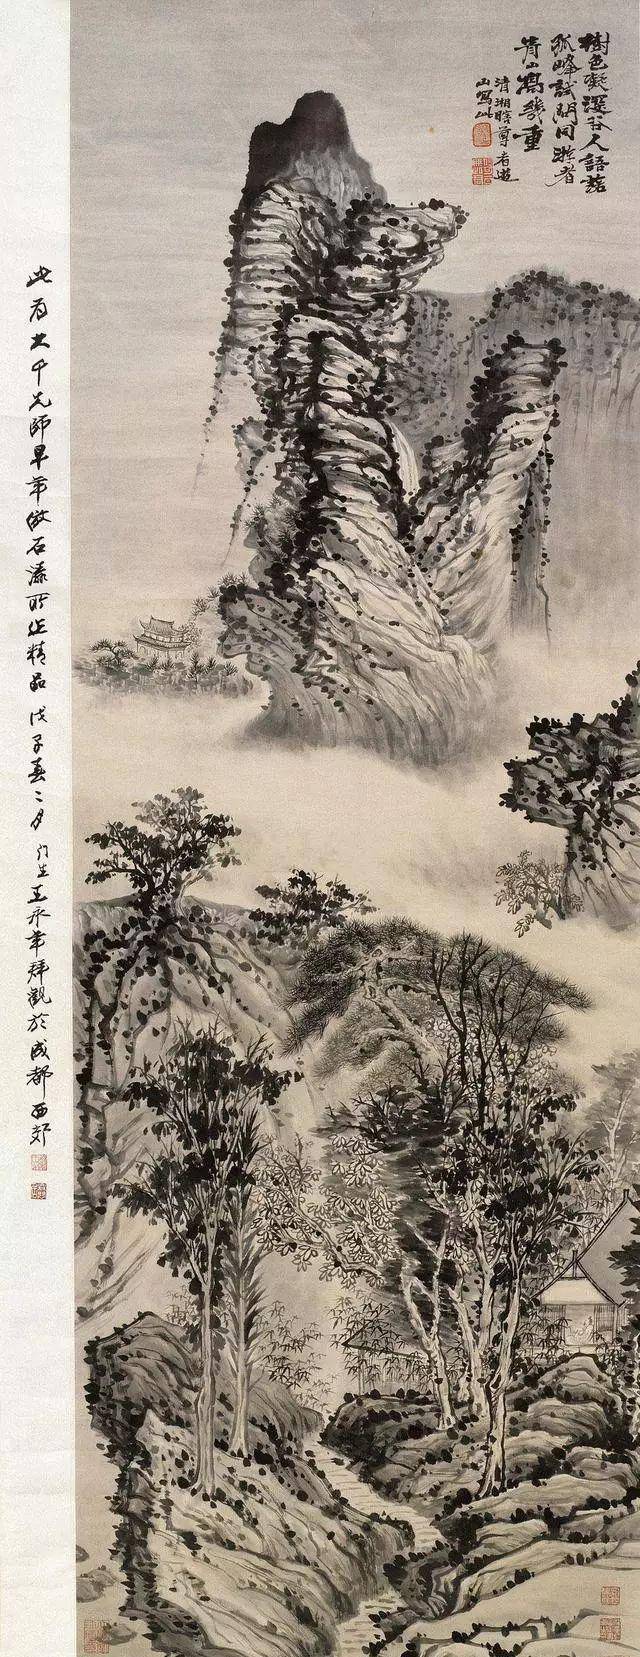 樹色凝深谷人語落
孤峰試問同游者
青山寫幾重
清湘陳尊者遊
山寫此
此为大千先師早年倣石濤所作精品 戊子春二月 门生王永年拜觀於成都西郊